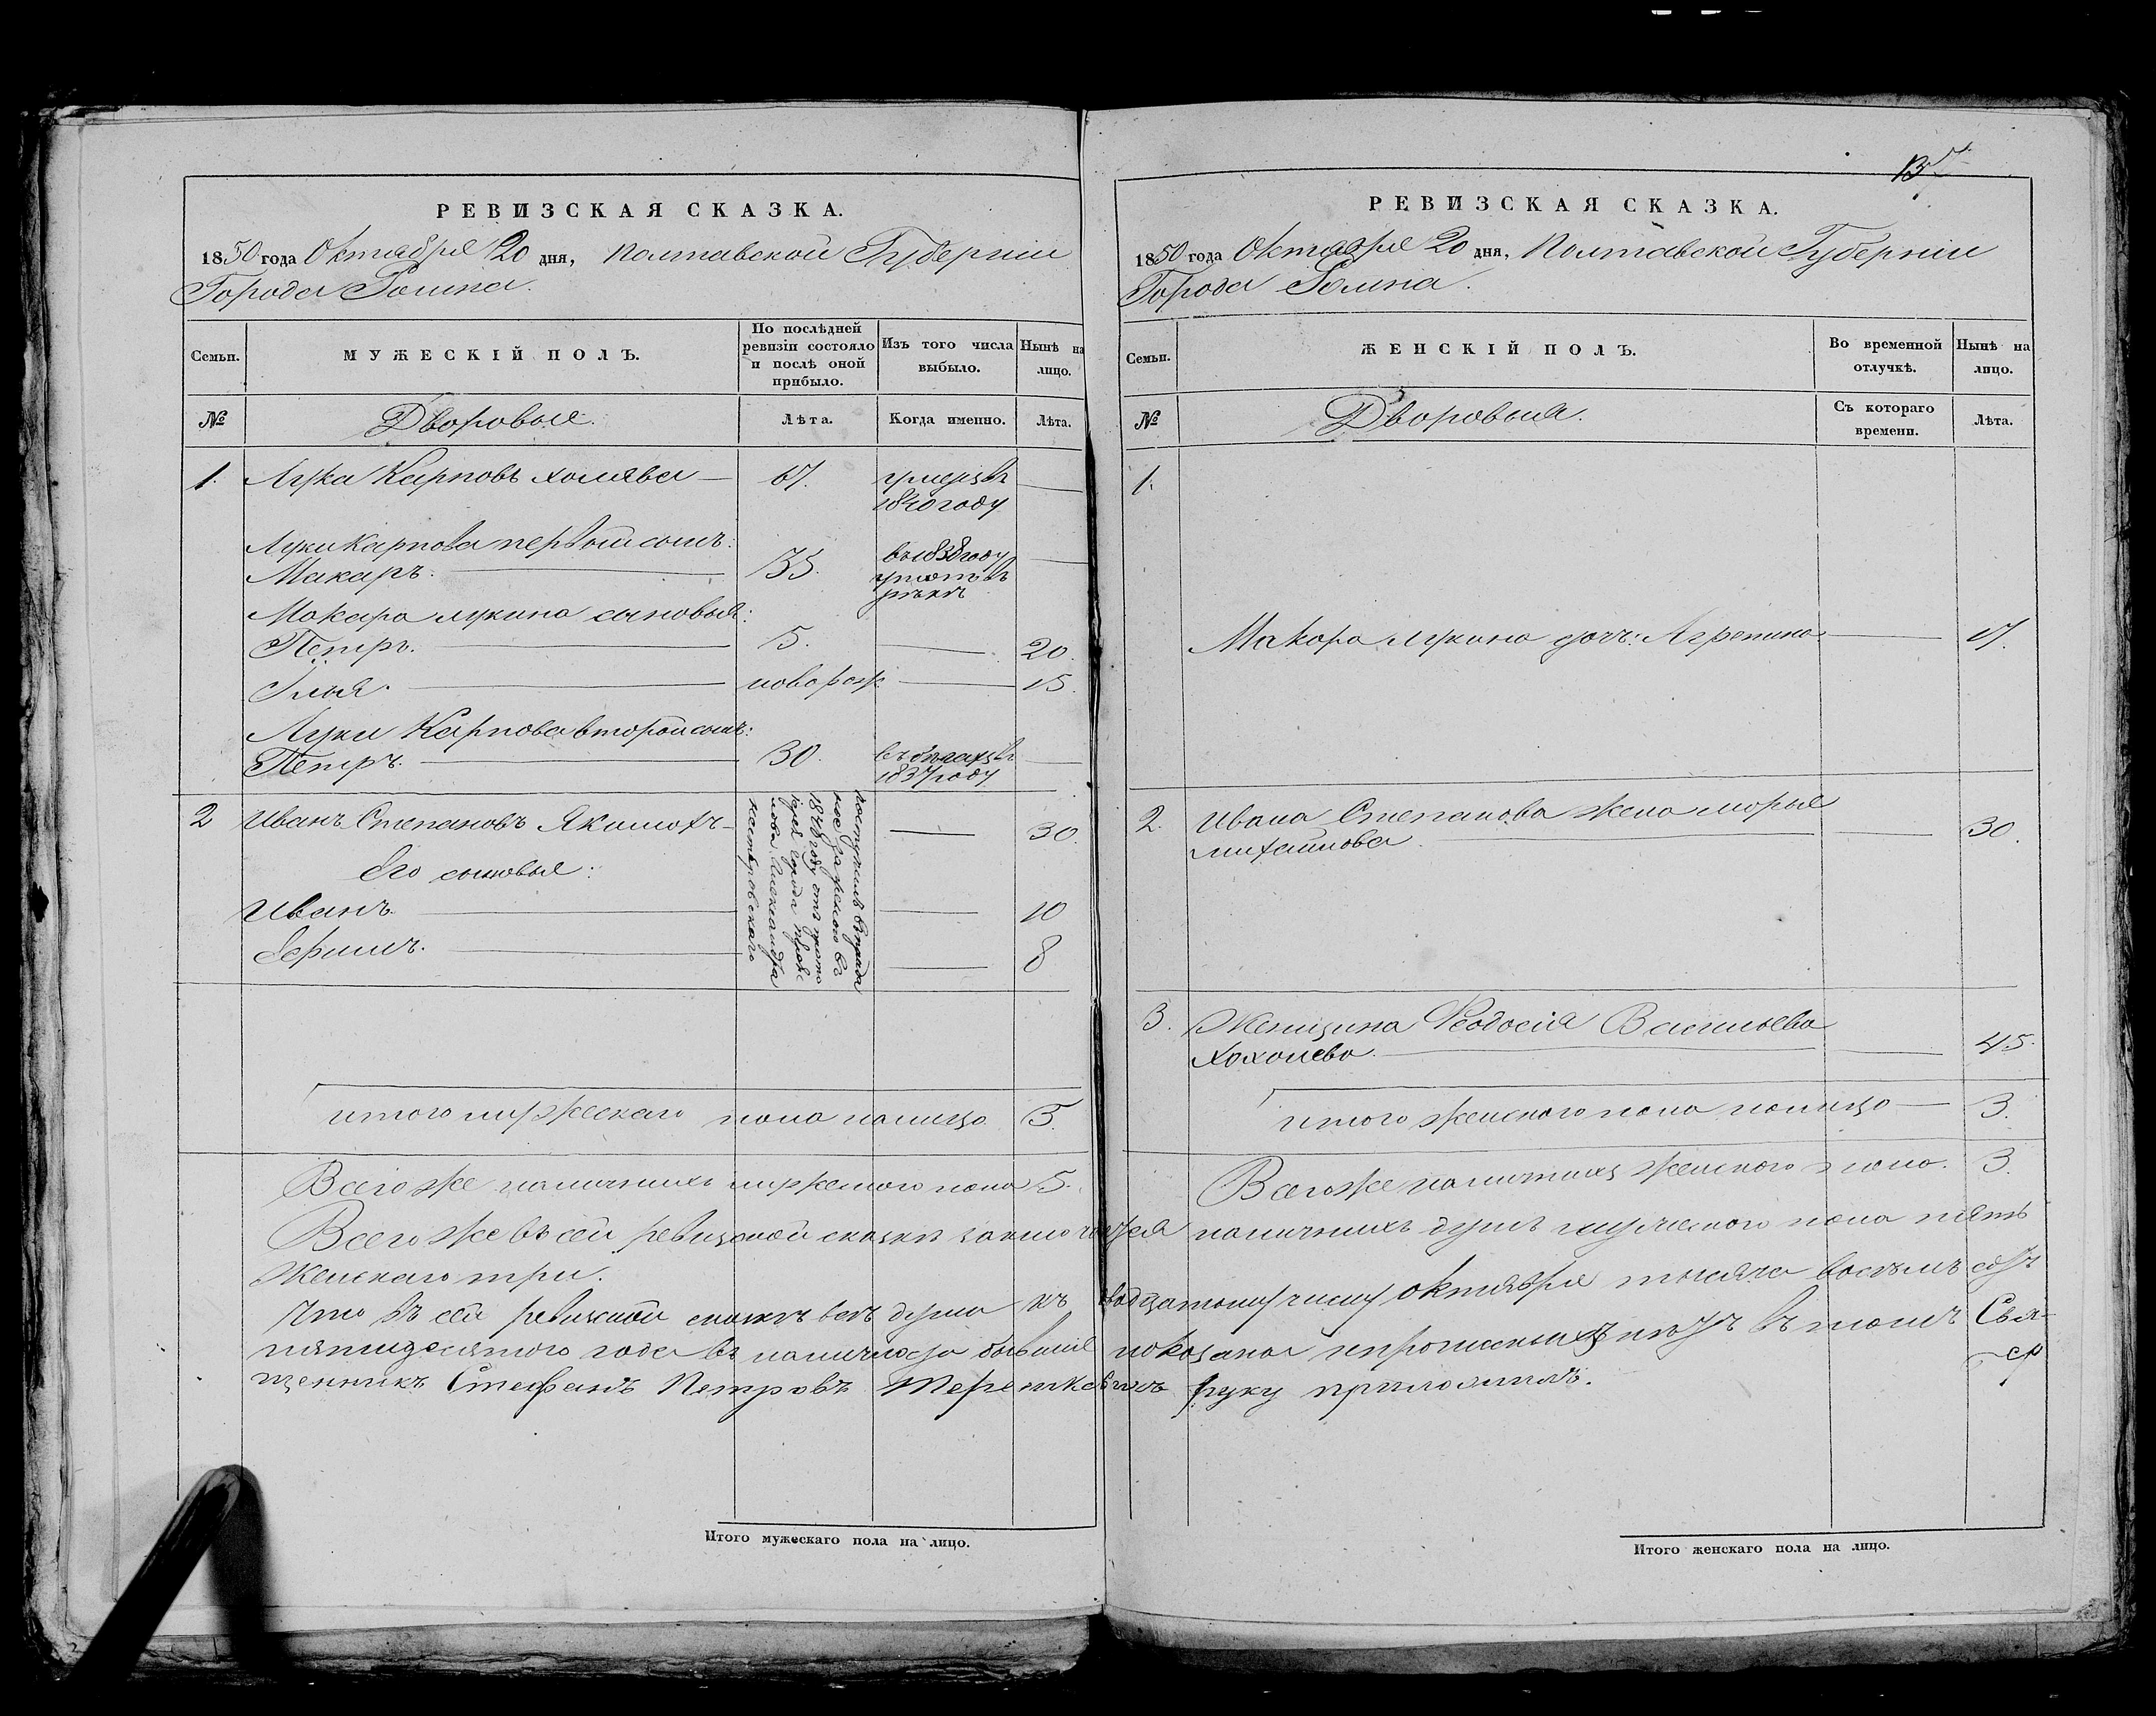 РЕВИЗСКАЯ СКАЗКА.
1850 года Октября 20 дня, Полтавской Губернии
Города Ромна.
Семьи.
МУЖЕСКІЙ ПОЛЪ.
По послѣдней
ревизіи состояло
и послѣ оной
прибыло.
Изъ того числа
выбыло.
Нынѣ на
лицо.
№
Дворовые.
Лѣта.
Когда именно.
Лѣта.
1. Лука Карповъ Холява 67.
1840 году
Луки Карпова первый сынъ:
Макаръ. 35.
въ 1838 году
Макара Лукина сыновья:
Петръ. 5. 20.
Илья. новорож 15.
Луки Карпова второй сынъ:
Петръ. 30. въ бегахъ съ
1837 году
2 Иванъ Степановъ 30.
поступилъ въ
въ
1848 году отъ прото
іерея города
Александра
Его сыновья:
Иванъ. 10
Ефимъ. 8
итого мужескаго пола налицо 5.
Всего же наличныхъ мужескаго пола 5.
РЕВИЗСКАЯ СКАЗКА.
1850 года Октября 20 дня, Полтавской Губернии
Города Ромна.
Семьи.
ЖЕНСКІЙ ПОЛЪ.
Во временной
отлучкѣ.
Нынѣ на
лицо.
№
Дворовыя.
Съ котораго
времени.
Лѣта.
1.
Макара Лукина дочь: Агрепина 17.
2. Ивана Степанова жена Марья
Михайлова 30.
3. Женщина Феодосія Васильева
Хохолева. 45.
итого женскаго пола налицо 3.
Всего же наличныхъ женскаго пола. 3.
Всего же въ сей ревизской сказкѣ заключается наличныхъ душъ мужескаго пола пять
Женскаго три.
Что въ сей ревизской сказкѣ всѣ души къ двадцатому числу Октября тысяча восемь сотъ
пятидесятого года въ наличности бывшіе показаны и прописныхъ нѣтъ въ томъ Свя-
щенникъ Стефанъ Петровъ руку приложилъ.
Итого мужескаго пола на лицо.
Итого женскаго пола на лицо.